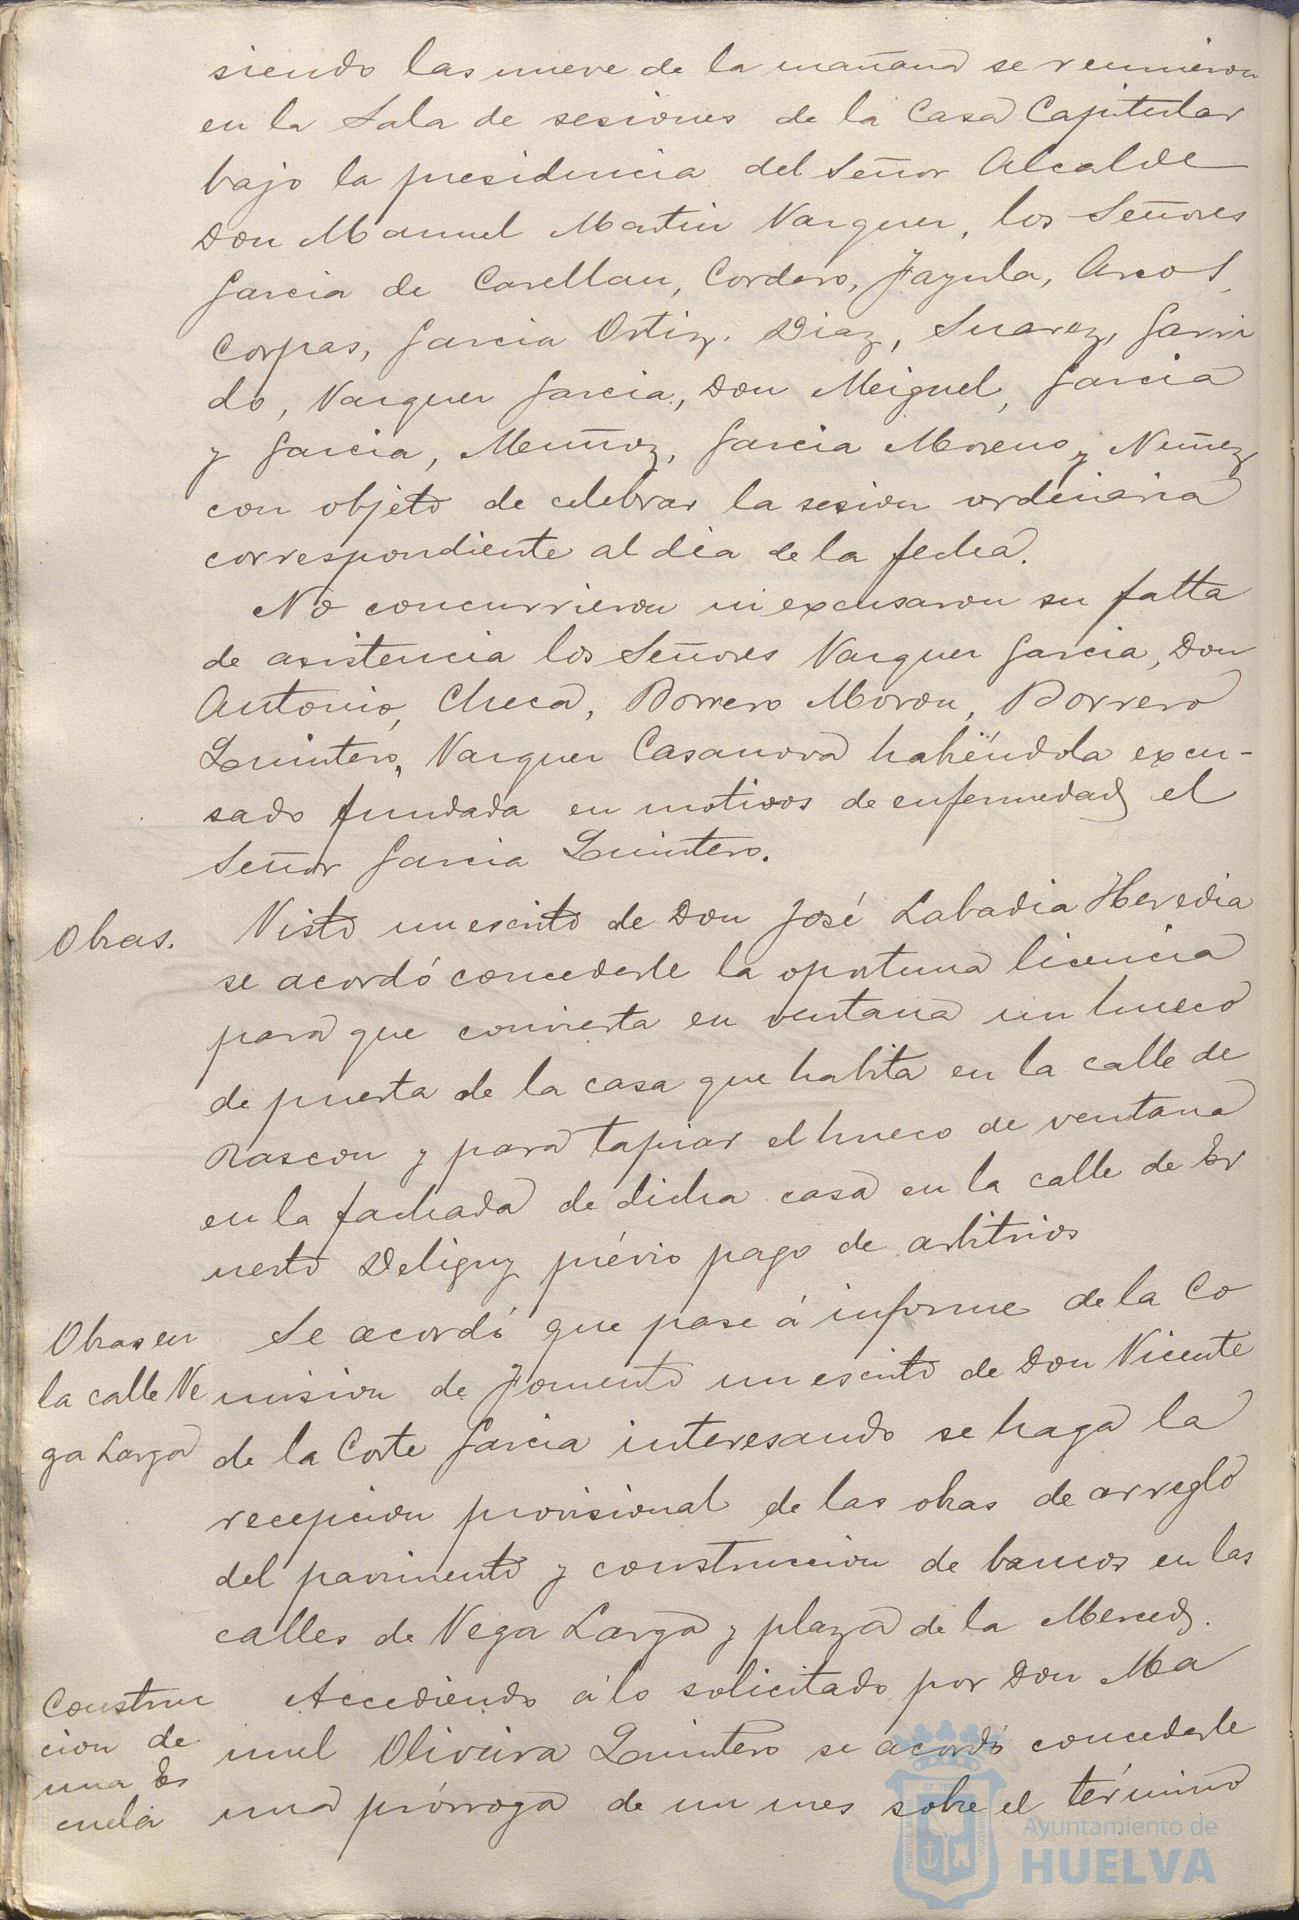 siendo las nueve de la mañana se reunieron
en la Sala de sesiones de la Casa Capitular
bajo la presidencia del Señor Alcalde
Don Manuel Martin Vazquez, los Señores
Garcia de Casellan, Cordero, Jayula, Arcos,
Corpas, Garcia Ortiz, Diaz, Suarez, Garri
do, Vazquez Garcia, Don Miguel, Garcia
y Garcia, Muñoz, Garcia Moreno y Nuñez
con objeto de celebrar la sesion ordinaria
correspondiente al dia de la fecha.
No concurrieron ni excusaron su falta
de asistencia los Señores Vazquez Garcia, Don
Antonio, Checa, Borrero Moron, Borrero
Quintero, Vazquez Casanova habiéndola excu-
sado fundada en motivos de enfermedad el
Señor Garcia Quintero.
Obras.
Visto un escrito de Don José Labadia Heredia
se acordó concederle la oportuna licencia
para que convierta en ventana un hueco
de puerta de la casa que habita en la calle de
Rascon y para tapiar el hueco de ventana
en la fachada de dicha casa en la calle de Er
nesto Deligny prévio pago de arbitrios
Obras en
la calle Ve
ga Larga
Se acordó que pase á informe de la Co
mision de Fomento un escrito de Don Vicente
de la Corte Garcia interesando se haga la
recepcion provisional de las obras de arreglo
del pavimento y construccion de bancos en las
calles de Vega Larga y plaza de la Merced.
Construc
cion de
una Es
cuela
Accediendo á lo solicitado por Don Ma
nuel Oliveira Quintero se acordó concederle
una prórroga de un mes sobre el término
Ayuntamiento de
HUELVA